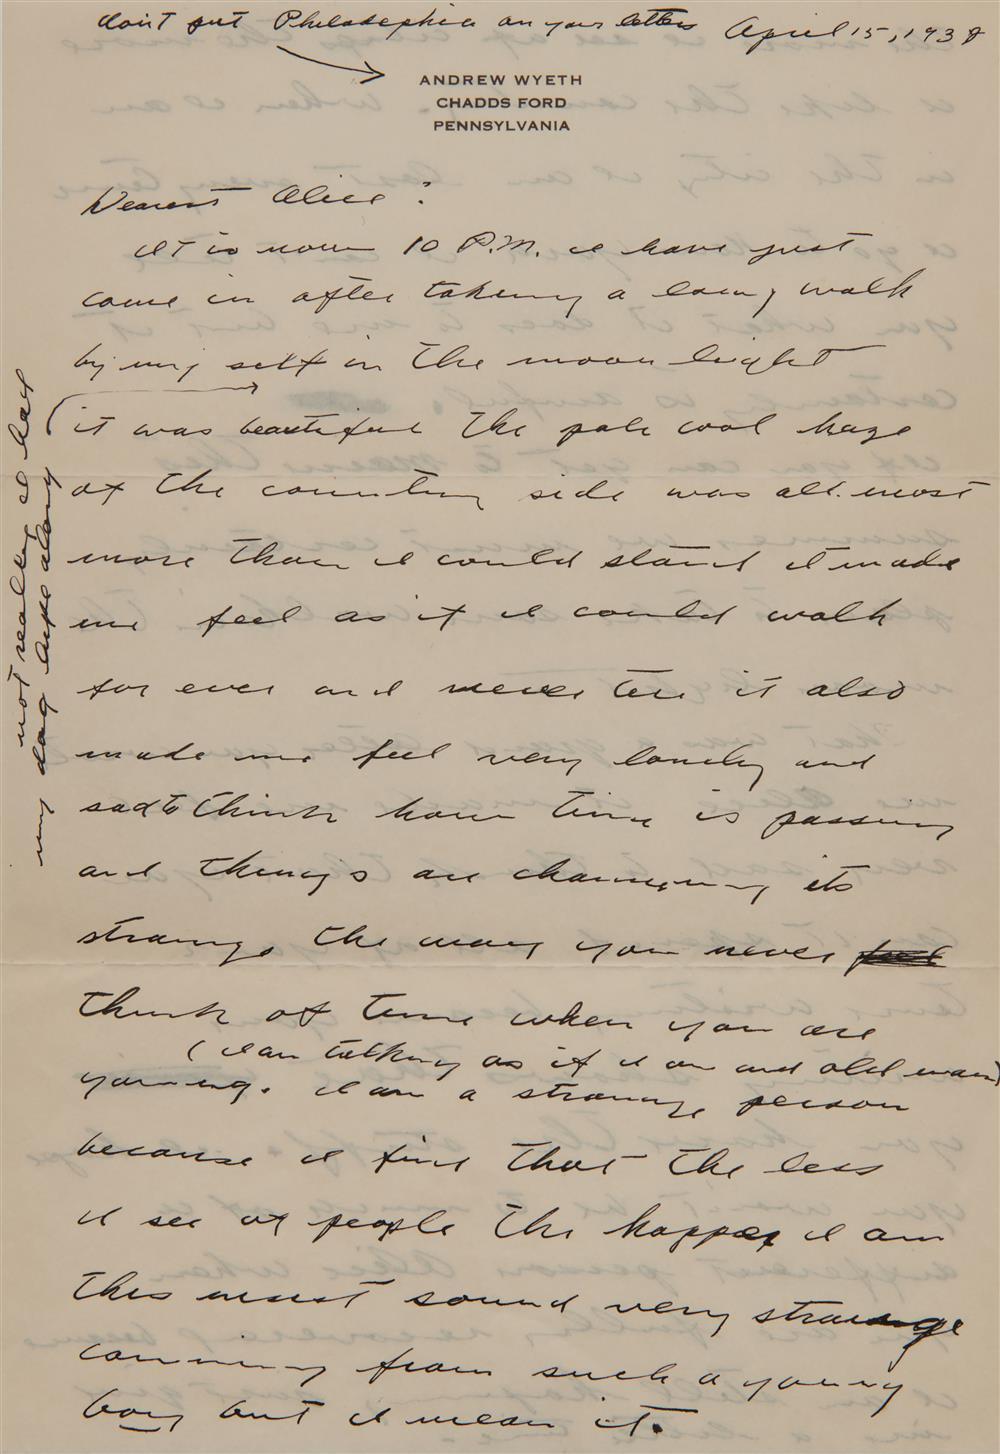 don't put Philadelphia on your letters
April 15, 1938
ANDREW WYETH
CHADDS FORD
PENNSYLVANIA
Dearest Alice:
It is now 10 P.M. I have just
come in after takeing a long walk
by my self in the moon light
not really I had
my dog Lupe along
it was beautiful the pale cool haze
of the country side was all.most
more than I could stand it made
me feel as if I could walk
for ever and never tire it also
made me feel very lonely and
sad to think how time is passing
and things are changeing its
strange the way you never
think of time when you are
(I am talking as if I am and old man)
young. I am a strange person
because I find that the less
I see of people the happer I am
this must sound very strange
comming from such a young
boy but I mean it.